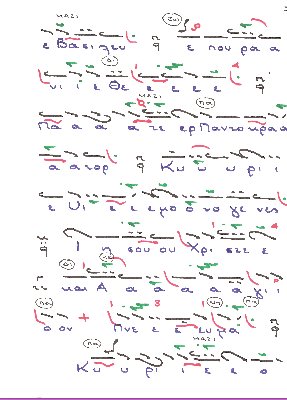 ε Βα σι λευ ε που ρα α
νι ι ε Θε ε ε ε ε
Πα α α α τε ερ Παν το κρα α
α α τορ Κυ υ υ ρι ι
ε Υι ε ε ε μο ο νο γε νες
Ι η σου ου Χρι ι στε ε
και Α α α α α γι ι
ο ον Πνε ε ε ευ μα
ΜΑΖΙ
Κυ υ ρι ι ε ε ο